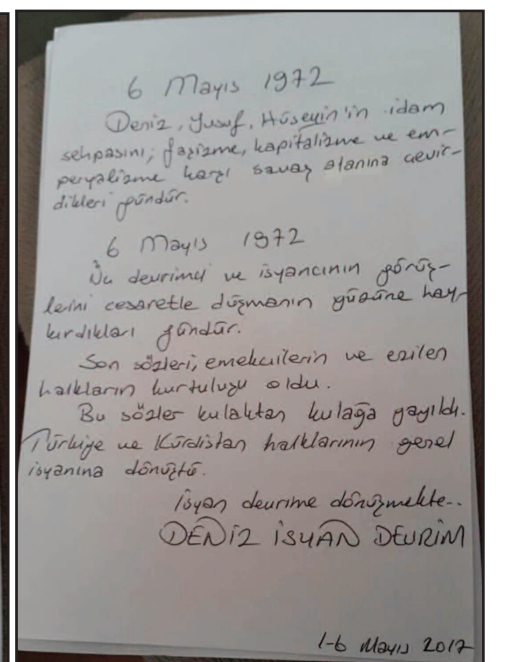 6 Mayıs 1972
Deniz, Yusuf, Hüseyin'in idam
sehpasını; faşizme, kapitalizme ve em-
peryalizme karşı savaş alanına çevir-
dikleri gündür.
6 Mayıs 1972
Üç devrimci ve isyancının görüş-
lerini cesaretle düşmanın yüzüne hay-
kırdıkları gündür.
Son sözleri, emekçilerin ve ezilen
halkların kurtuluşu oldu.
Bu sözler kulaktan kulağa yayıldı.
Türkiye ve Kürdistan halklarının genel
isyanına dönüştü.
İsyan devrime dönüşmekte..
DENİZ İSYAN DEVRİM
1-6 Mayıs 2017